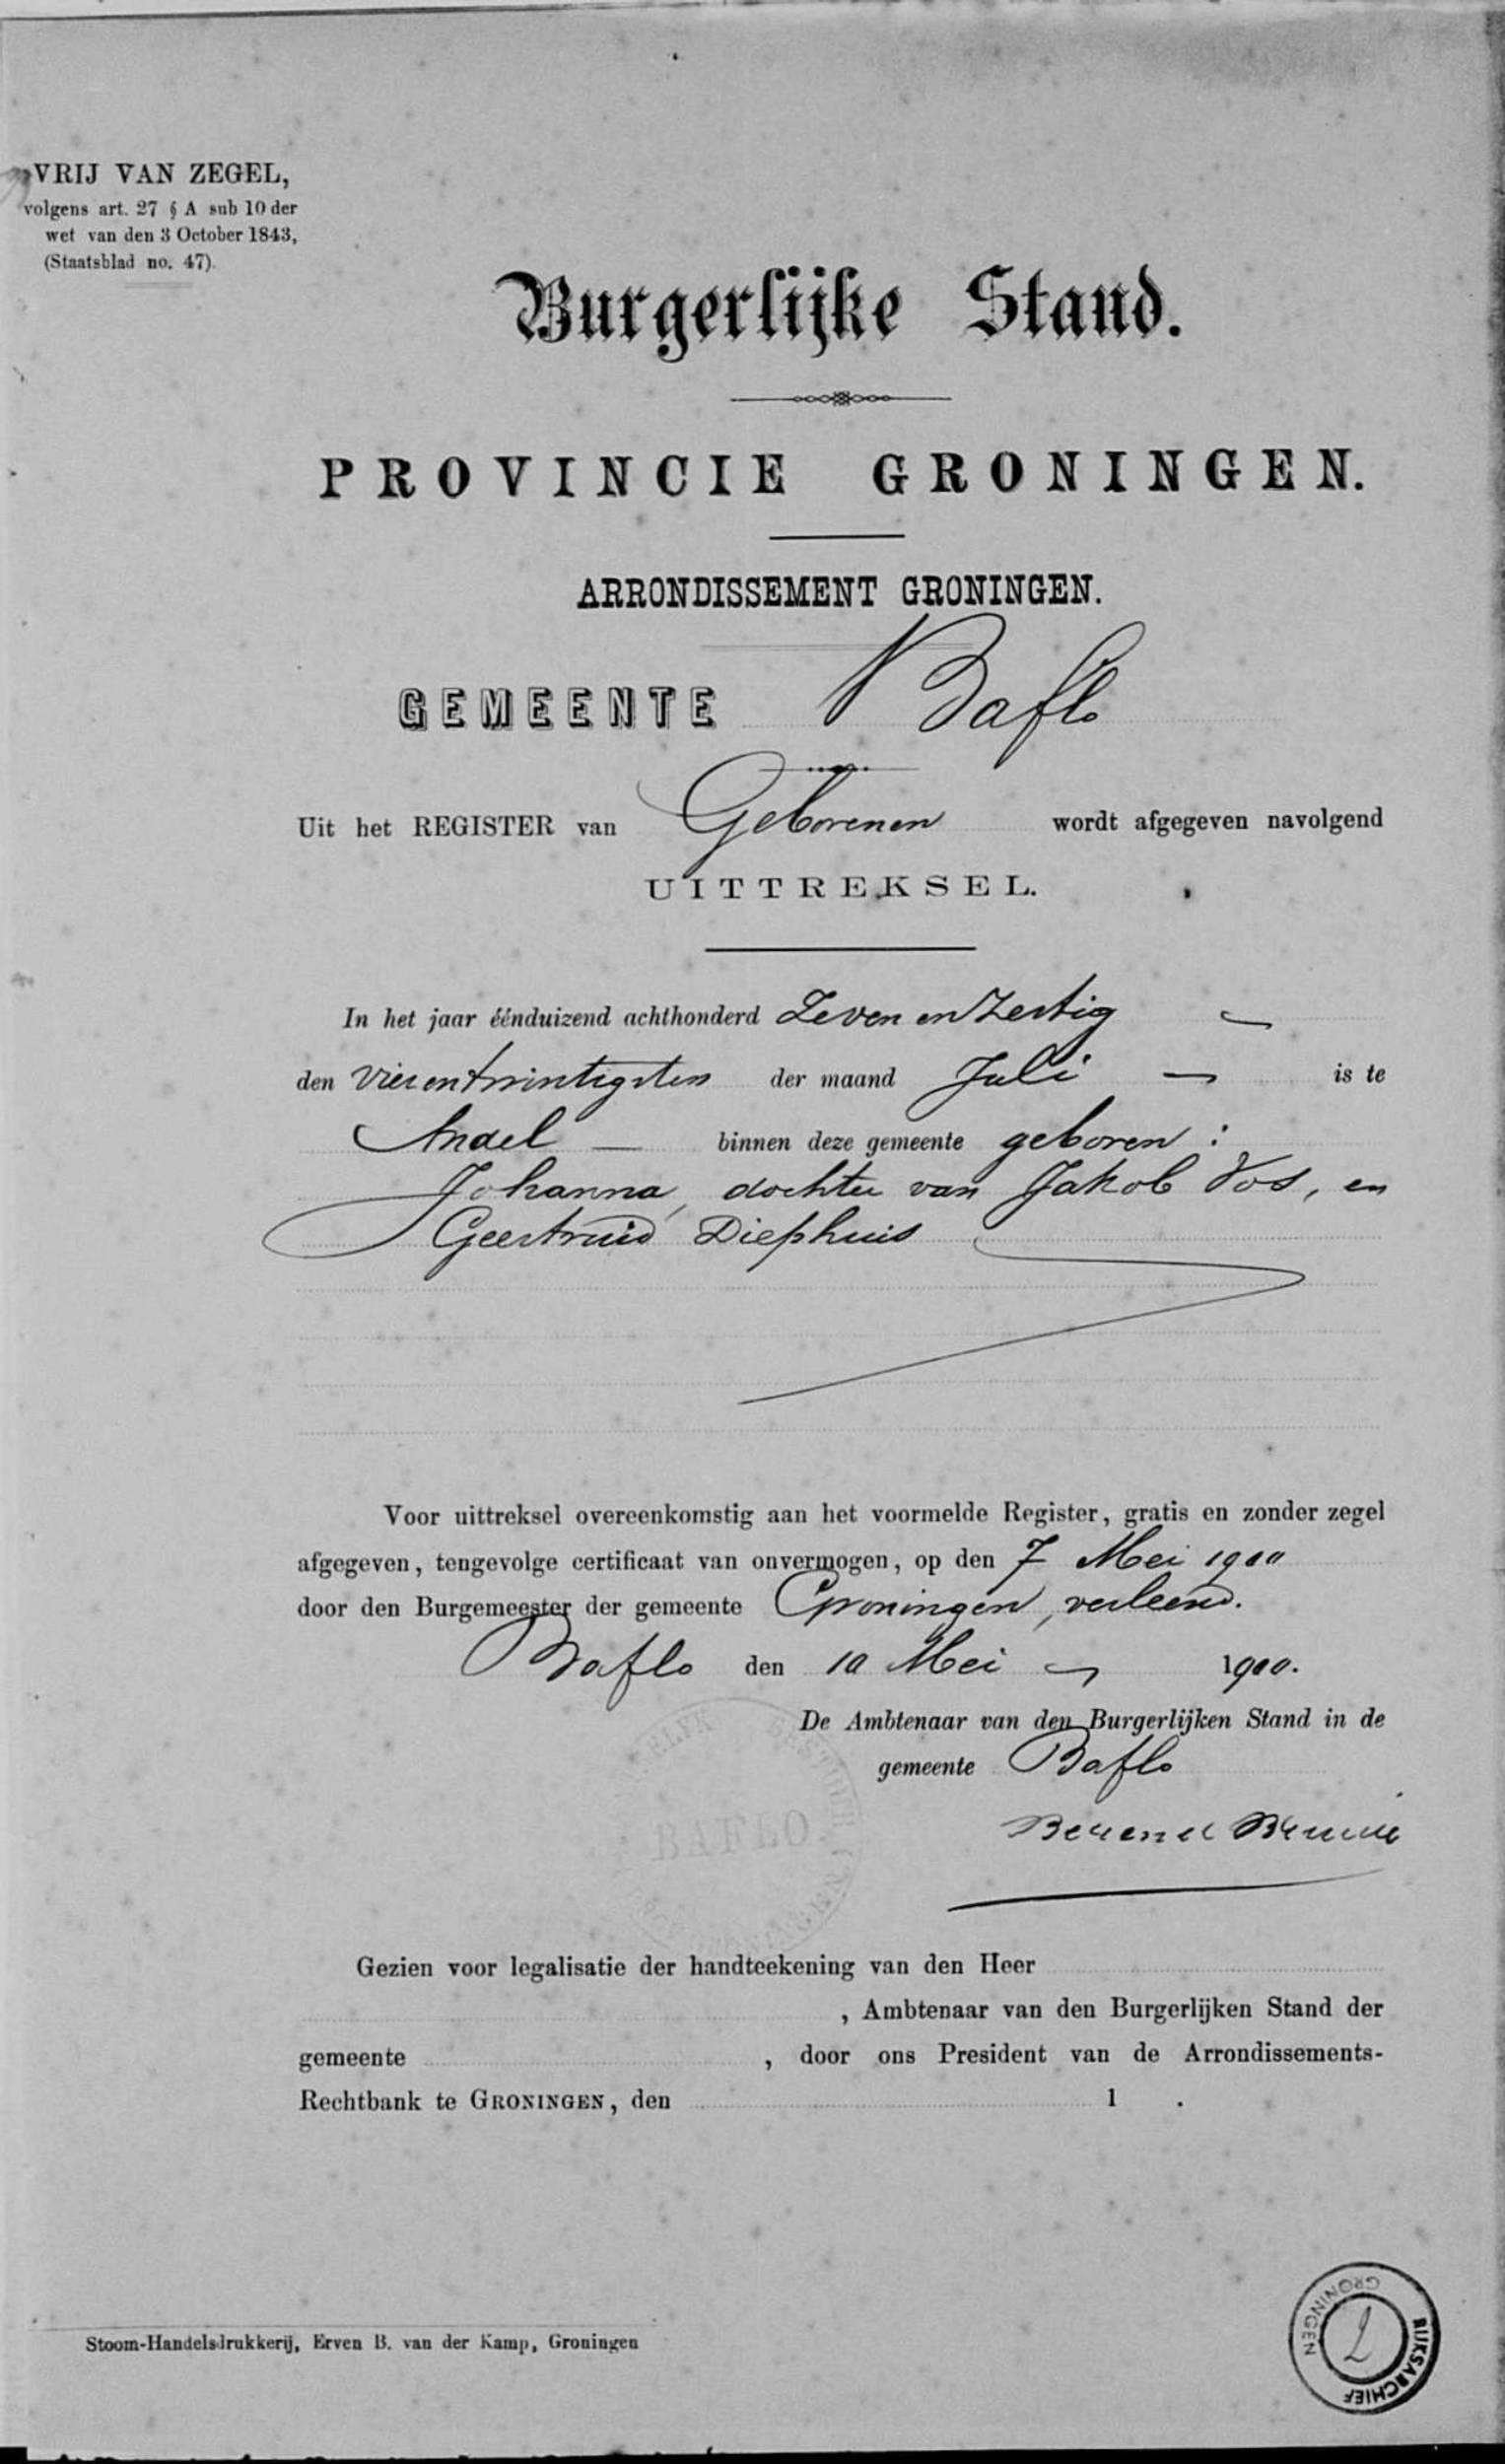 VRIJ VAN ZEGEL,
volgens art. 27 § A sub 10 der
wet van den 3 October 1843,
(Staatsblad no. 47).
Burgerlijke Stand.
PROVINCIE GRONINGEN.
ARRONDISSEMENT GRONINGEN.
GEMEENTE Baflo
Uit het REGISTER van Geborenen wordt afgegeven navolgend
UITTREKSEL.
In het jaar éénduizend achthonderd Zeven en Zestig
den vierentwintigsten der maand Juli — is te
Andel — binnen deze gemeente geboren :
Johanna, dochter van Jakob Vos, en
Geertruid Diephuis
Voor uittreksel overeenkomstig aan het voormelde Register, gratis en zonder zegel
afgegeven, tengevolge certificaat van onvermogen, op den 7 Mei 1900
door den Burgemeester der gemeente Groningen, verleend.
Baflo den 10 Mei 1900.
De Ambtenaar van den Burgerlijken Stand in de
gemeente Baflo
BAFLO
Gezien voor legalisatie der handteekening van den Heer
, Ambtenaar van den Burgerlijken Stand der
gemeente , door ons President van de Arrondissements-
Rechtbank te GRONINGEN, den 1 .
Stoom-Handelsdrukkerij, Erven B. van der Kamp, Groningen
RIJKSARCHIEF GRONINGEN